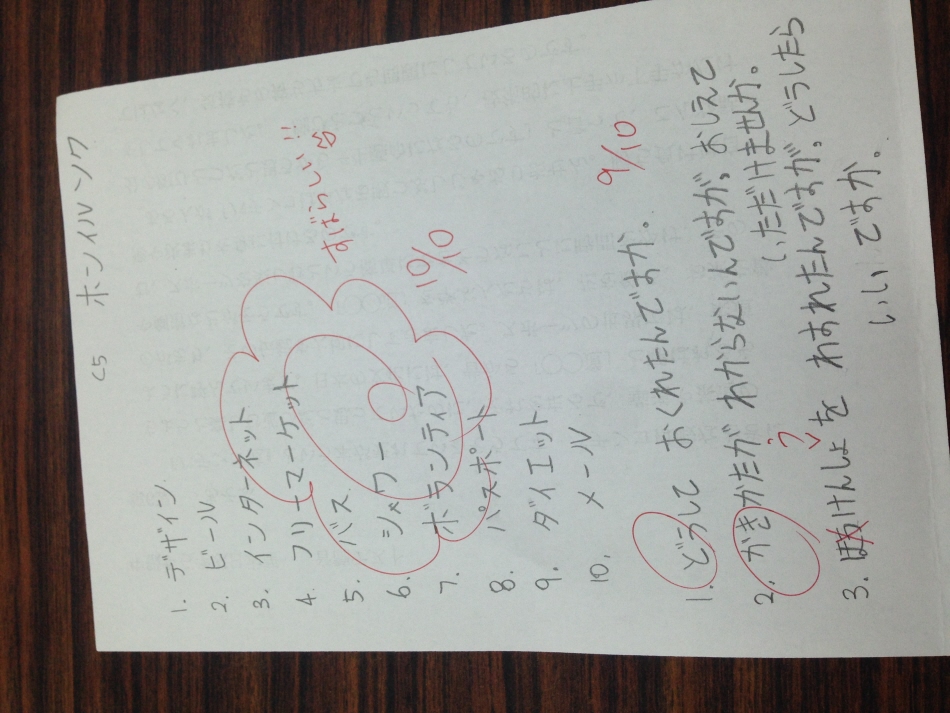 C5
1. デザイン
2. ビール
3. インターネット
4. フリーマーケット
5. バス
6. シャワー
7. ボランティア
8. パスポート
9. ダイエット
10. メール
すばらしい!!
10/10
9/10
1. どうして おくれたんですか。
2. かきかたが わからないんですが。おしえて
いただけませんか。
う
3. ほけんしょを わすれたんですが。どうしたら
いいですか。